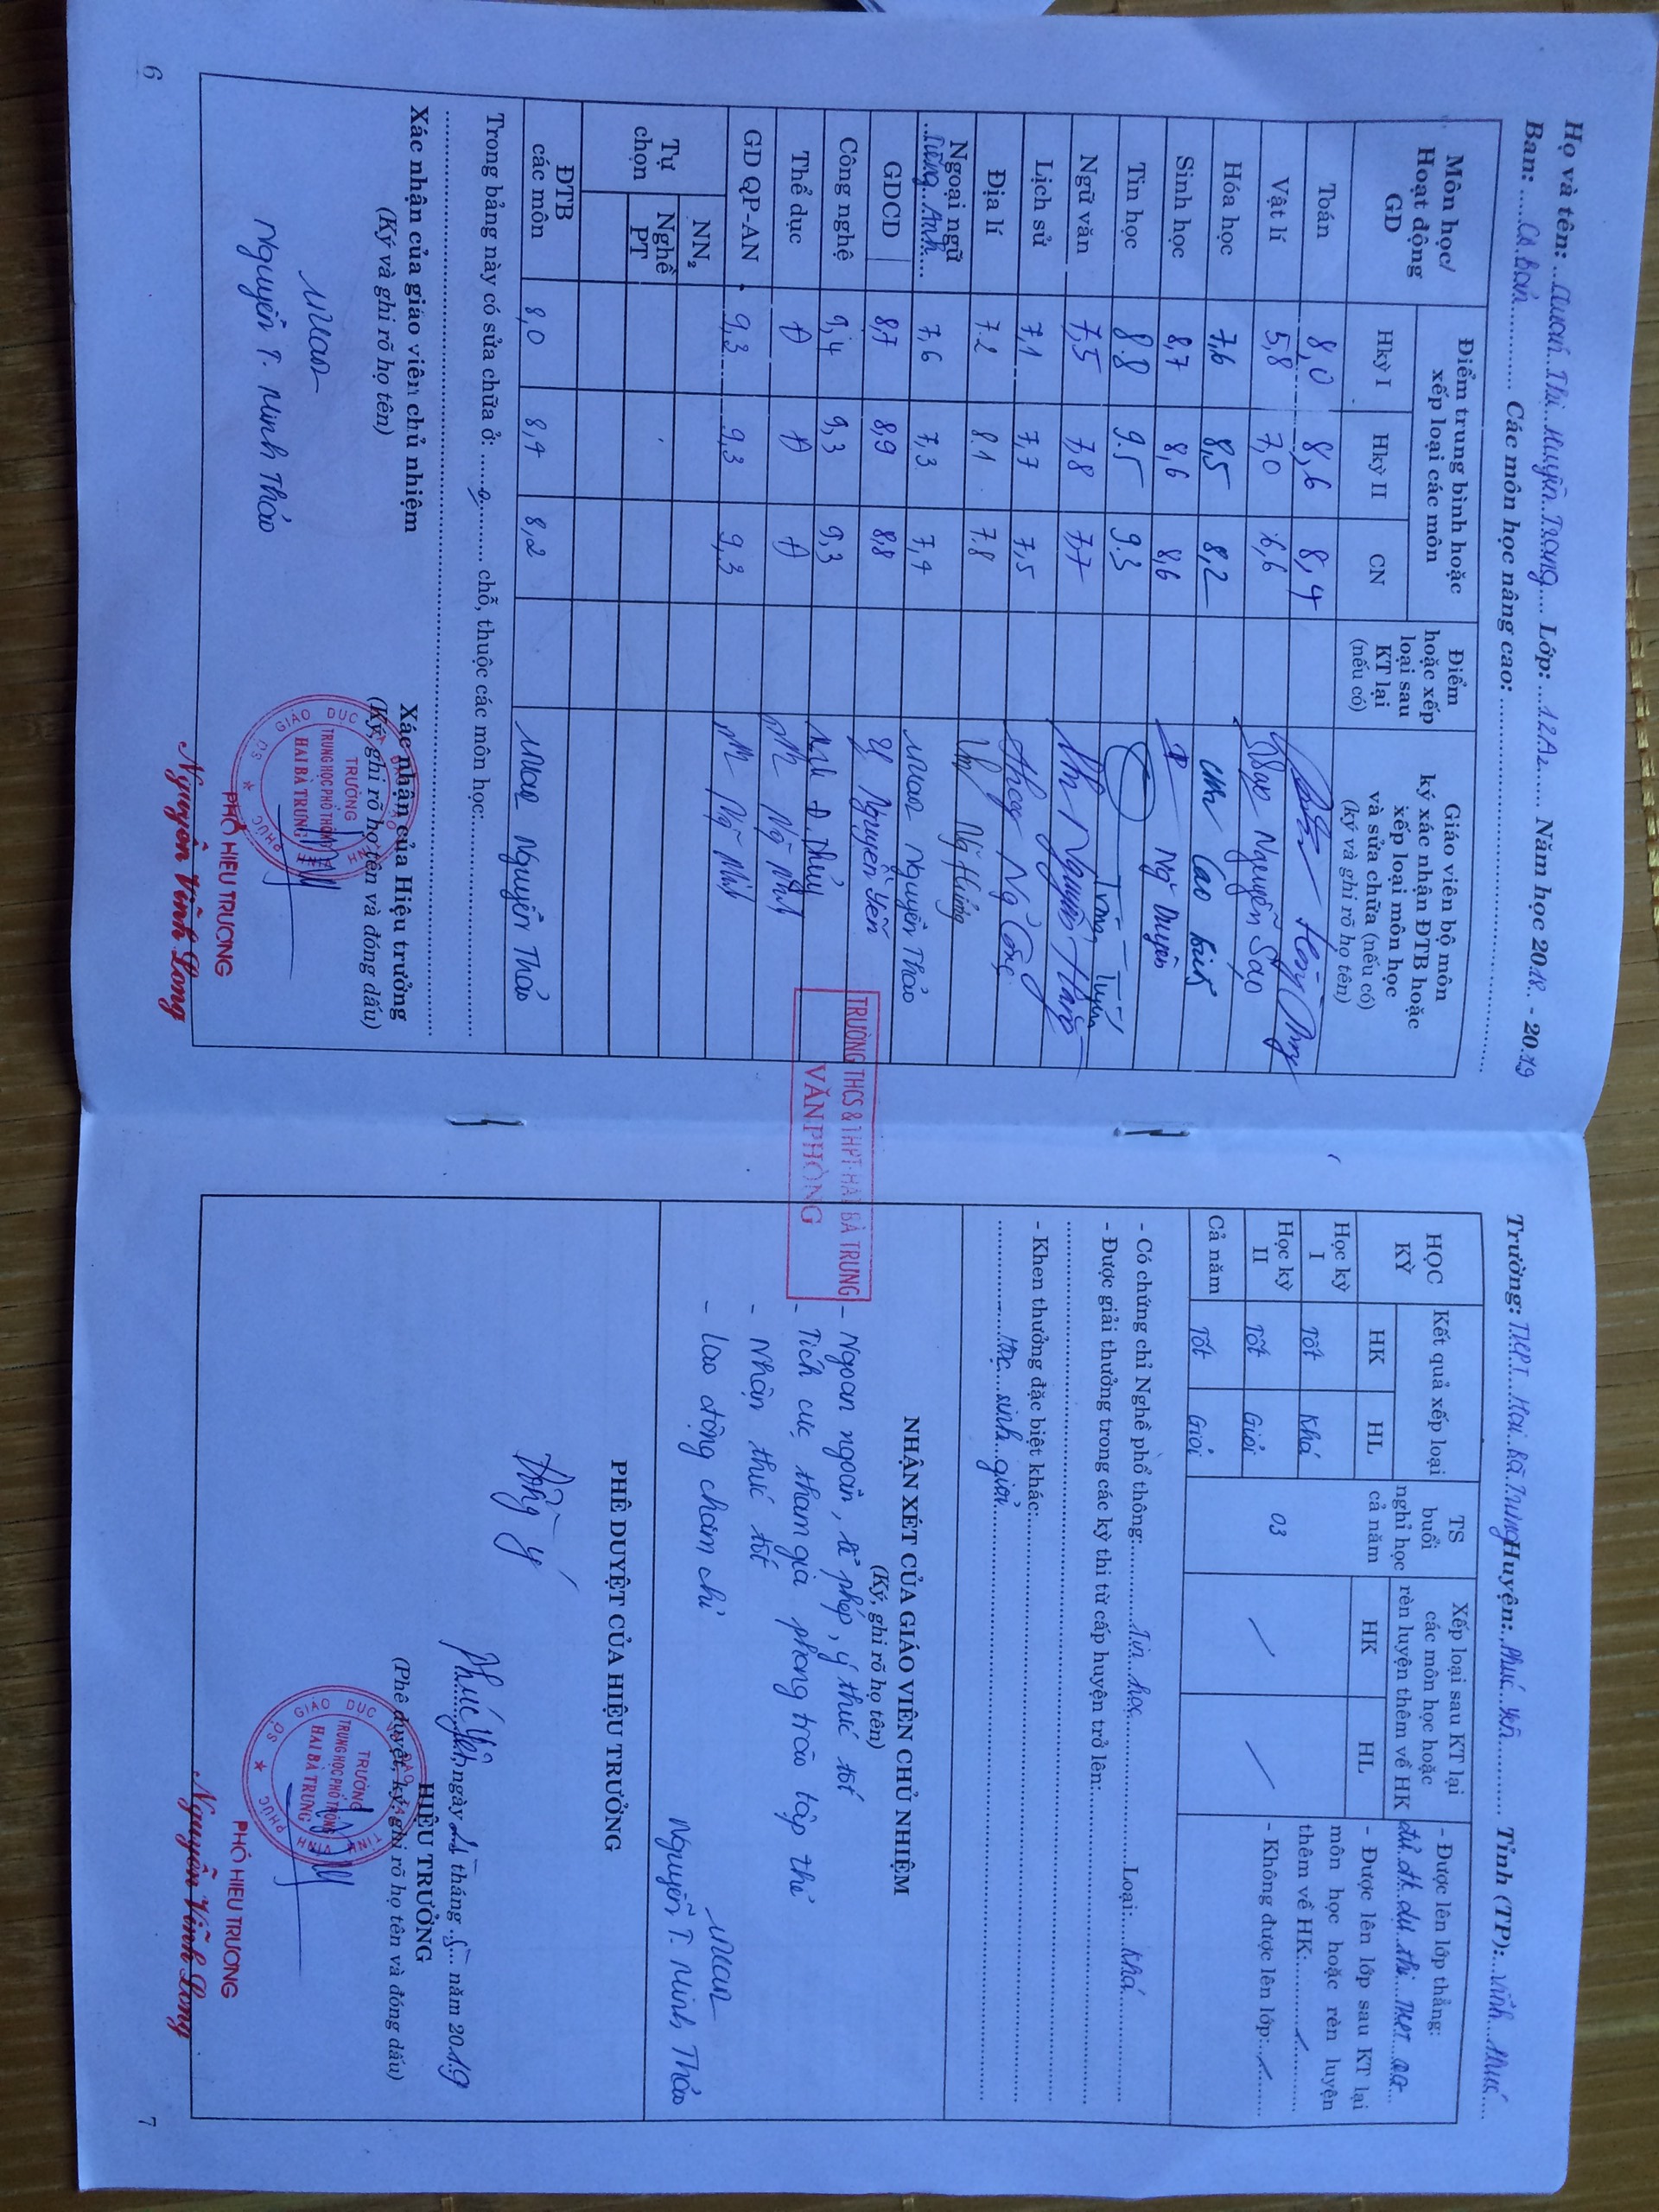 Họ và tên: ... Thị Huyền Trang Lớp: 12A2 Năm học 2018 - 2019
Ban: Cơ bản Các môn học nâng cao:
Môn học/ Hoạt động GD
Điểm trung bình hoặc xếp loại các môn
Hkỳ I Hkỳ II CN
Điểm hoặc xếp loại sau KT lại (nếu có)
Giáo viên bộ môn ký xác nhận ĐTB hoặc xếp loại môn học và sửa chữa (nếu có) (ký và ghi rõ họ tên)
Toán 8,0 8,6 8,4
Vật lí 5,8 7,0 6,6 Nguyễn Sao
Hóa học 7,6 8,5 8,2 Cao
Sinh học 8,7 8,6 8,6 Ngô Duyên
Tin học 8.8 9.5 9.3
Ngữ văn 7,5 7,8 7,7 Nguyễn Hằng
Lịch sử 7,1 7,7 7,5
Địa lí 7.2 8.1 7.8
Ngoại ngữ Tiếng Anh 7,6 7,3 7,4 Nguyễn Thảo
GDCD 8,7 8,9 8,8 Nguyễn Yến
Công nghệ 9,4 9,3 9,3 Đ. Thủy
Thể dục Đ Đ Đ
GD QP-AN 9,3 9,3 9,3
Tự chọn
NN₂
Nghề PT
ĐTB các môn 8,0 8,4 8,2 Nguyễn Thảo
Trong bảng này có sửa chữa ở: 0 chỗ, thuộc các môn học:
Xác nhận của giáo viên chủ nhiệm
(Ký và ghi rõ họ tên)
Nguyễn T. Minh Thảo
Xác nhận của Hiệu trưởng
(Ký, ghi rõ họ tên và đóng dấu)
SỞ GIÁO DỤC
TRƯỜNG
TRUNG HỌC PHỔ THÔNG
HAI BÀ TRUNG
PHÓ HIỆU TRƯỞNG
Nguyễn Vĩnh Long
6
TRƯỜNG THCS & THPT HAI BÀ TRUNG
VĂN PHÒNG
Trường: THPT Hai Bà Trưng Huyện: Phúc Yên Tỉnh (TP): Vĩnh Phúc
HỌC KỲ
Kết quả xếp loại
HK HL
TS buổi nghỉ học cả năm
Xếp loại sau KT lại các môn học hoặc rèn luyện thêm về HK
HK HL
Học kỳ I Tốt Khá
Học kỳ II Tốt Giỏi
Cả năm Tốt Giỏi
03
- Được lên lớp thẳng:
đủ đk dự thi THPT QG
- Được lên lớp sau KT lại
môn học hoặc rèn luyện
thêm về HK:
- Không được lên lớp:
- Có chứng chỉ Nghề phổ thông: Tin học Loại: Khá
- Được giải thưởng trong các kỳ thi từ cấp huyện trở lên:
- Khen thưởng đặc biệt khác:
Học sinh giỏi
NHẬN XÉT CỦA GIÁO VIÊN CHỦ NHIỆM
(Ký, ghi rõ họ tên)
- Ngoan ngoãn, lễ phép, ý thức tốt
- Tích cực tham gia phong trào tập thể
- Nhận thức tốt
- Lao động chăm chỉ
Nguyễn T. Minh Thảo
PHÊ DUYỆT CỦA HIỆU TRƯỞNG
Đồng ý
Phúc Yên, ngày 25 tháng 5 năm 2019
HIỆU TRƯỞNG
(Phê duyệt, ký, ghi rõ họ tên và đóng dấu)
SỞ GIÁO DỤC
TRƯỜNG
TRUNG HỌC PHỔ THÔNG
HAI BÀ TRƯNG
PHÓ HIỆU TRƯỞNG
Nguyễn Vĩnh Long
7